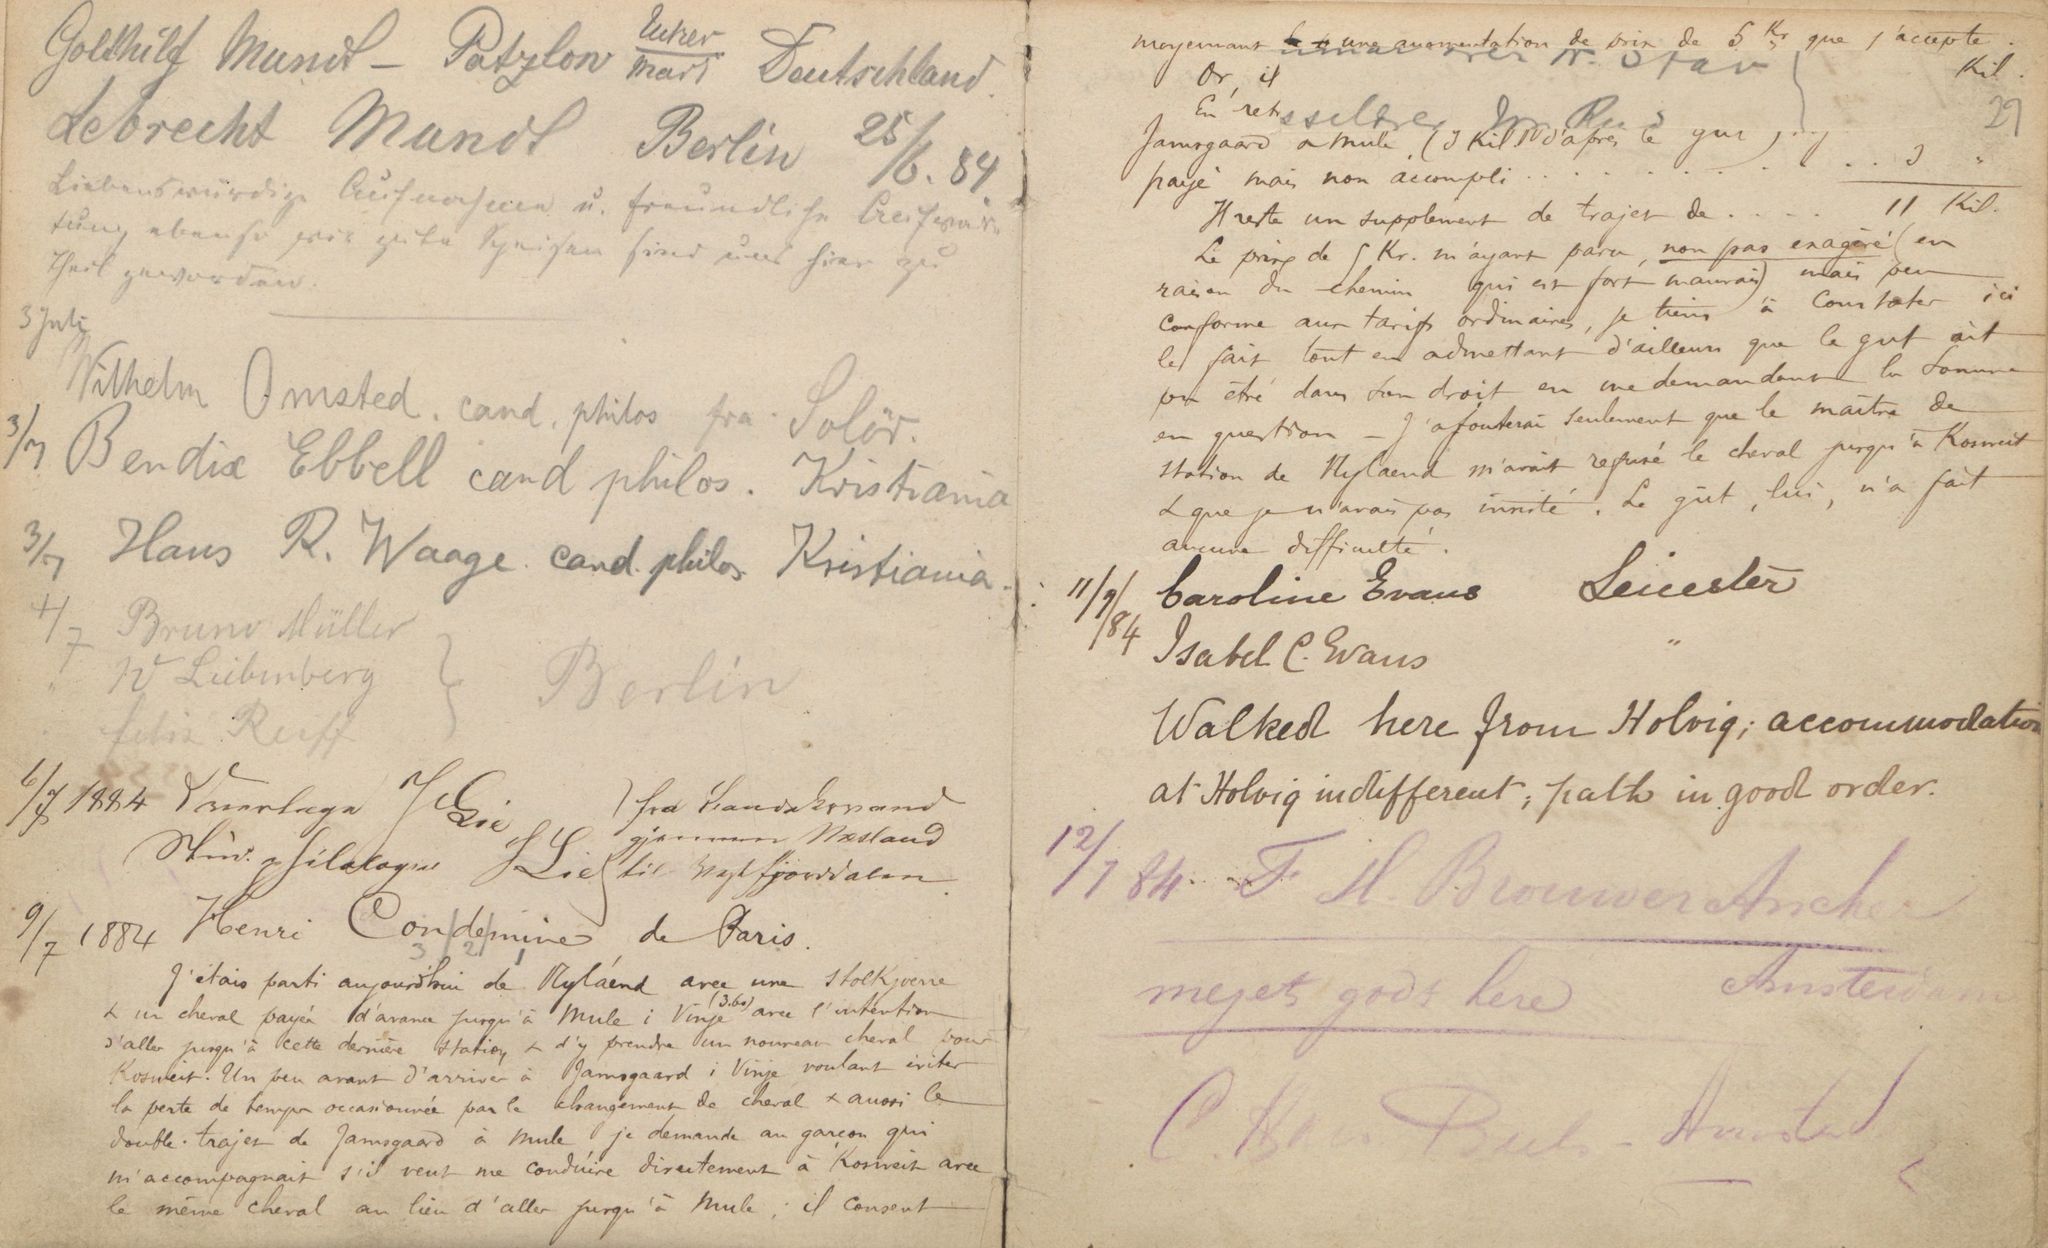 Gotthilf Mundt – Patzlow Uckermark Deutschland.
Lebrecht Mundt Berlin 25/6. 84
Liebenswürdige Aufnahme u. freundliche Aufwar-
tung ebenso wie gute Speisen sind uns hier zu
Theil geworden.
3 Juli
Wilhelm Omsted. cand. philos fra Solör.
3/7 Bendix Ebbell cand philos. Kristiania
3/7 Hans R. Waage cand. philos Kristiania.
4/7 Bruno Müller
W Liebenberg } Berlin
" Felix Reiff
6/7 1884 J Lie } fra
Stud. philologiæ J Lie gjennem
til Vestfjorddalen
9/7 1884 Henri Condemine de Paris.
3 2 1
J'étais parti aujourd'hui de Nyláend avec une Stolkjærre
& un cheval payés d'avance jusqu'à Mule i Vinje (3.60) avec l'intention
d'aller jusqu'à cette dernière station & d'y prendre un nouveau cheval pour
Kosweit. Un peu avant d'arriver à Jamsgaard i Vinje voulant éviter
la perte de temps occasionnée par le changement de cheval & aussi le
double-trajet de Jamsgaard à Mule je demande au garçon qui
m'accompagnait s'il veut me conduire directement à Kosweit avec
le même cheval au lieu d'aller jusqu'à Mule; il consent
moyennant une augmentation de prix de 5 Kr que j'accepte.
Or, il Kil.
En ret 29
Jamsgaard a Mule (3 Kil d'après le gut)
payé mais non accompli . . . . . . . . . 3 "
Il reste un supplement de trajet de . . . . 11 Kil.
Le prix de 5 Kr. m'ayant paru, non pas exagéré (en
raison du chemin qui est fort mauvais) mais peu
conforme aux tarifs ordinaires, je tiens à constater ici
le fait tout en admettant d'ailleurs que le gut ait
pu être dans son droit en me demandant la somme
en question – J'ajouterai seulement que le maître de
station de Nylaend m'avait refusé le cheval jusqu'à Kosweit
& que je n'avais pas insisté. Le gut, lui, n'a fait
aucune difficulté.
11/7/84 Caroline Evans Leicester
Isabel C. Evans "
Walked here from Holvig; accommodation
at Holvig indifferent; path in good order.
12/7 84. F. H. Brouwer Ancher
meget godt here Amsterdam
C.